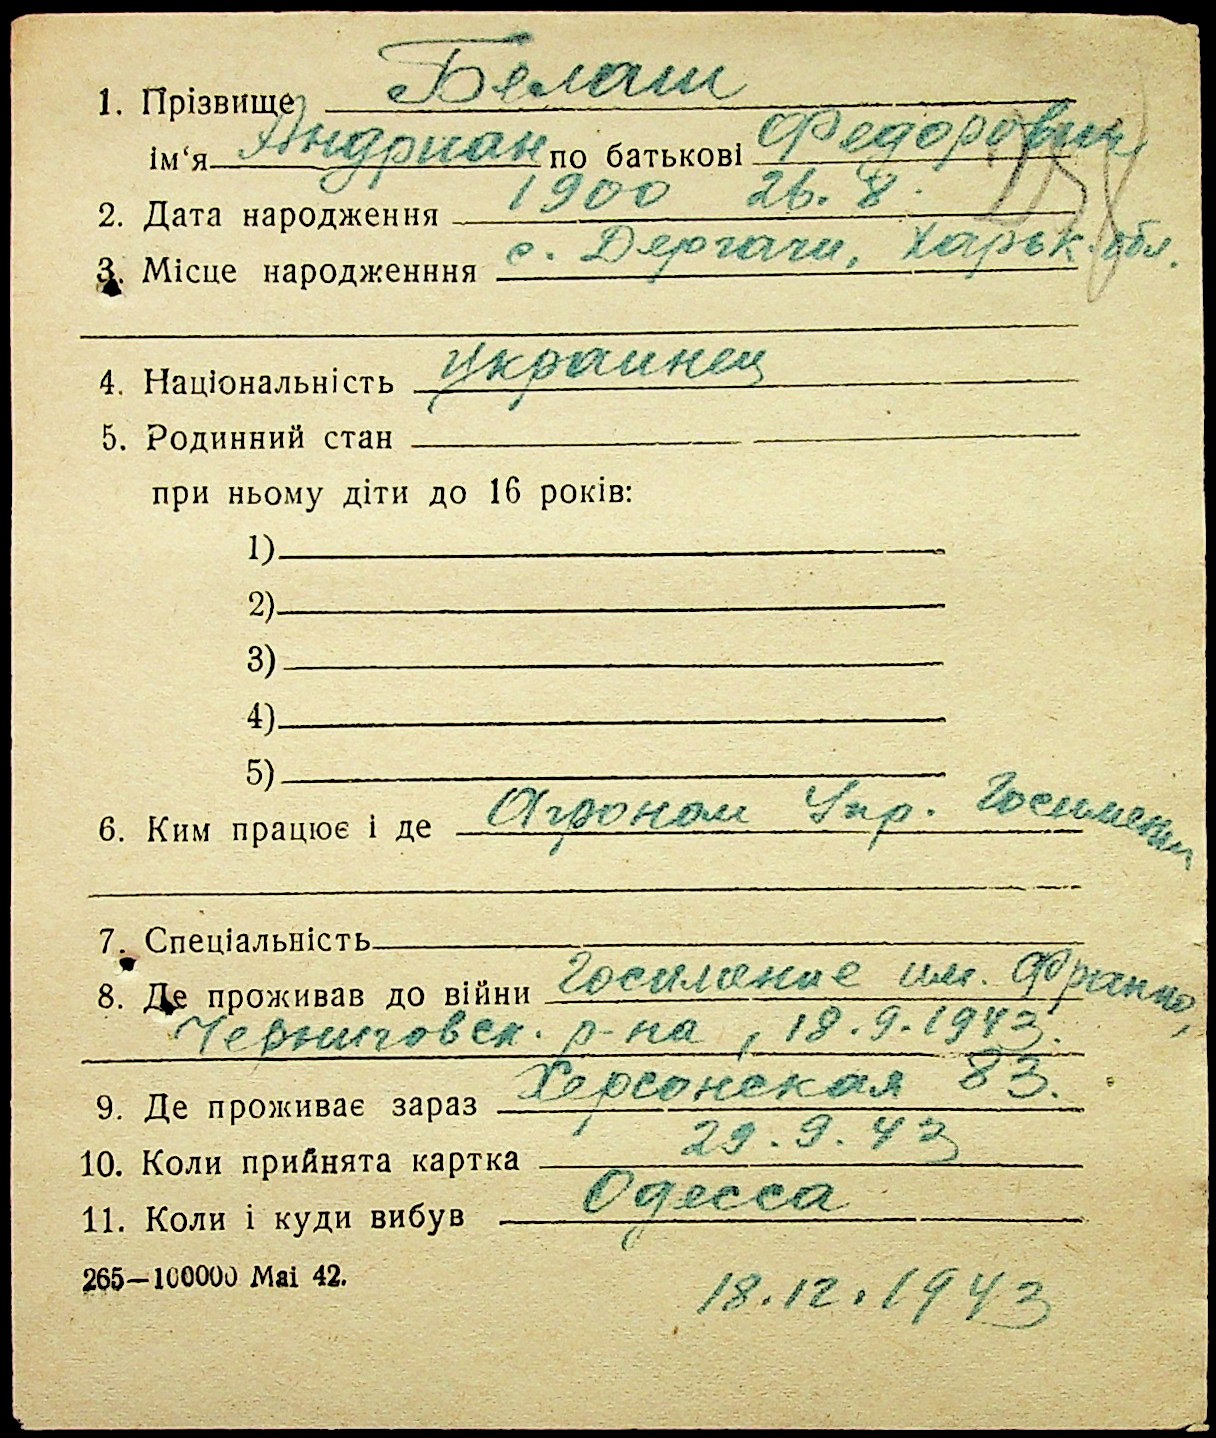 1. Прізвище Белаш
ім‘я Андриан по батькові Федорович
2. Дата народження 1900 26.8.
3. Місце народженння с. Дергачи, Харьк. обл.
4. Національність украинец
5. Родинний стан
при ньому діти до 16 років:
1)
2)
3)
4)
5)
6. Ким працює і де Агроном Упр. Госимении
7. Спеціальність
8. Де проживав до війни Госимение им. Франко,
Черниговск. р-на, 18.9.1943.
9. Де проживає зараз Херсонская 83.
10. Коли прийнята картка 29.9.43
11. Коли і куди вибув Одесса
265—100000 Маі 42.
18.12.1943